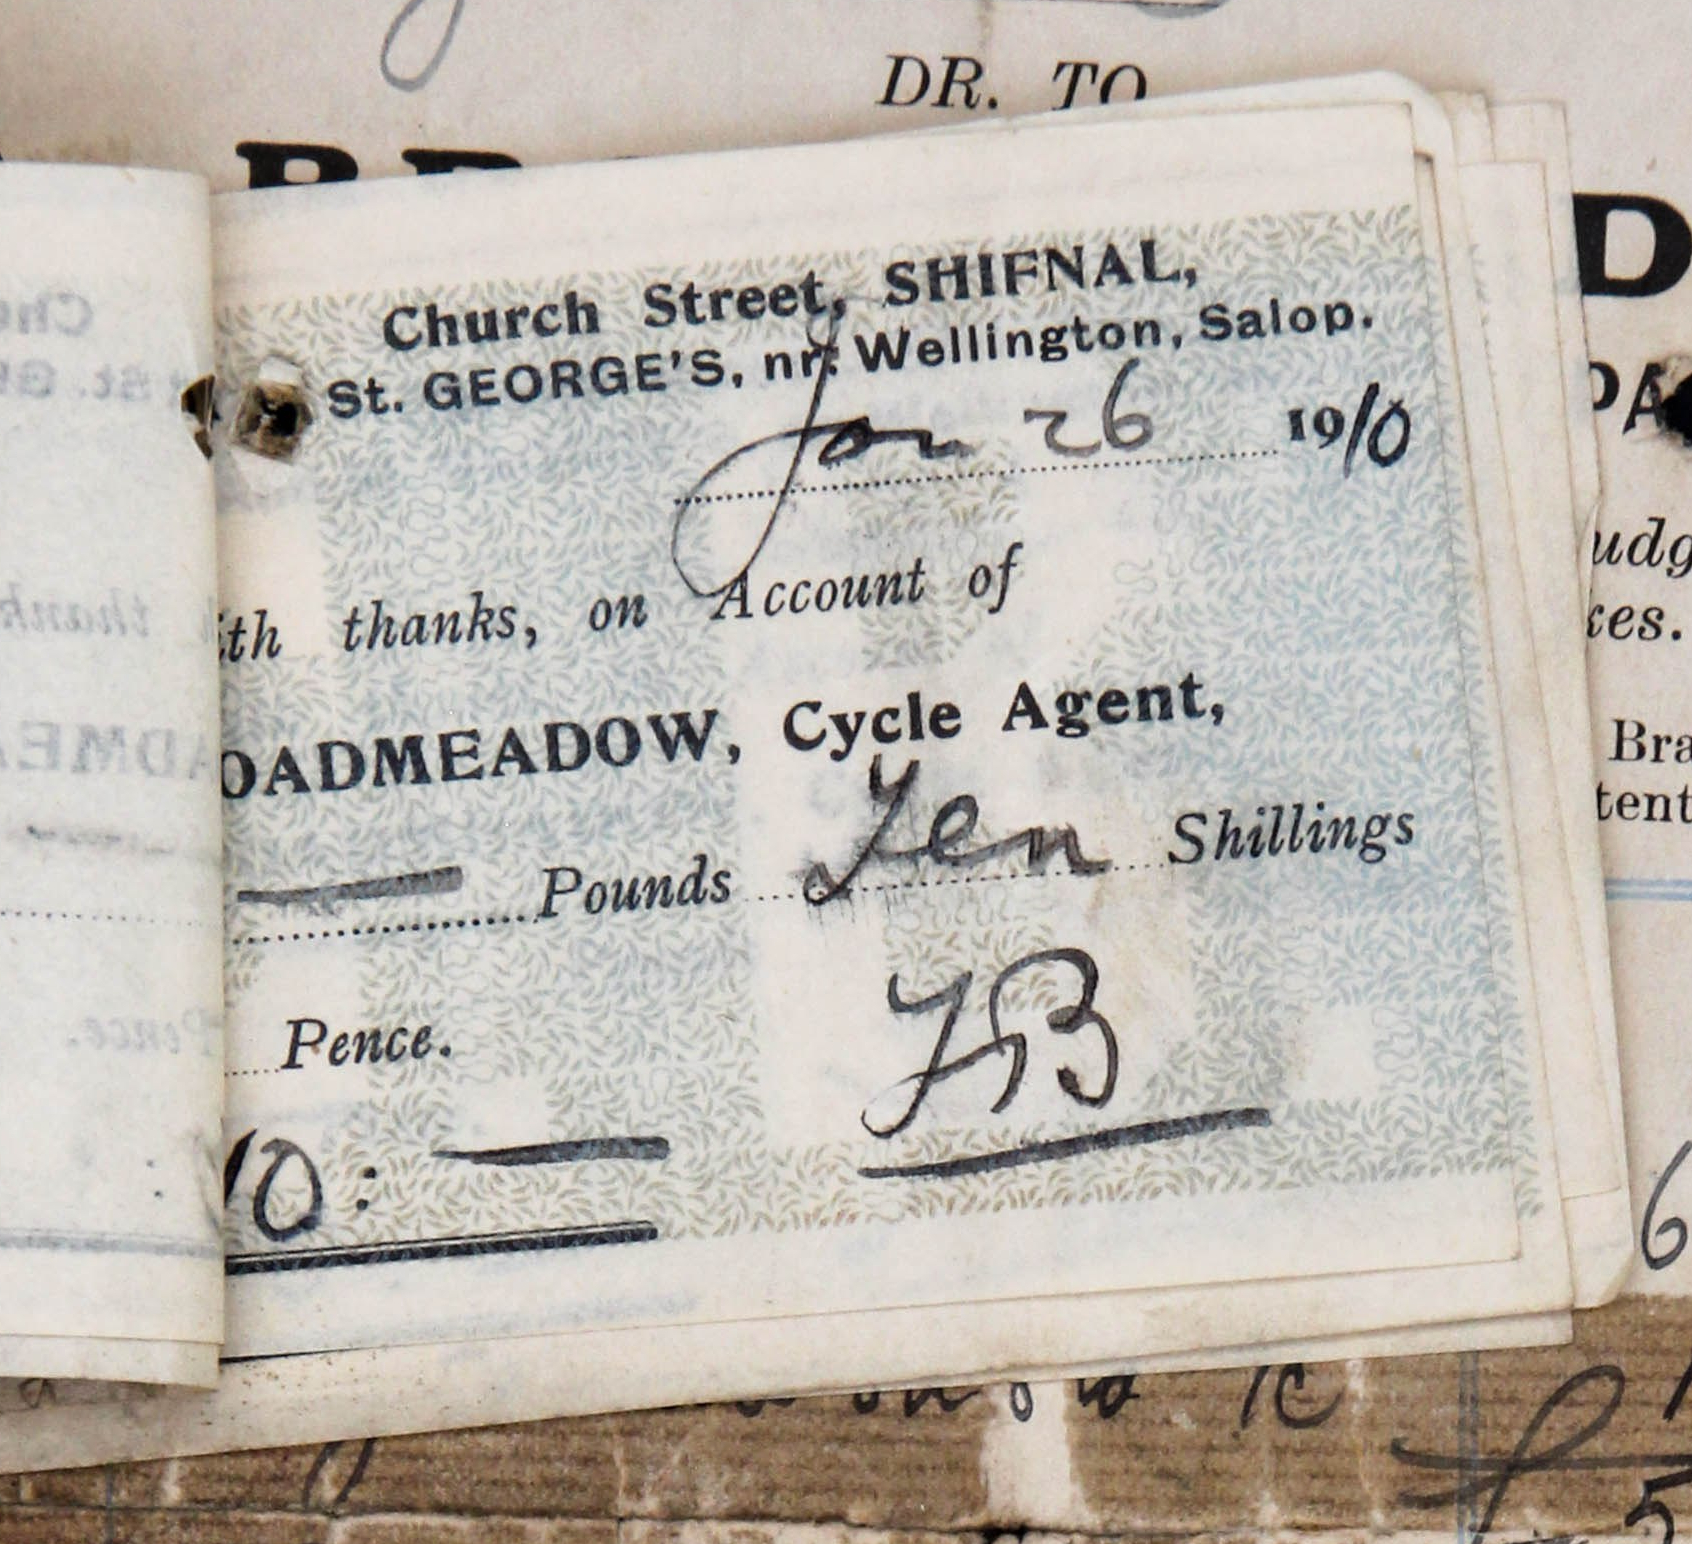 DR. TO
D
Church Street, SHIFNAL,
St. GEORGE'S, nr. Wellington, Salop.
Jan 26 1910
ith thanks, on Account of
OADMEADOW, Cycle Agent,
Pounds Ten Shillings
Pence.
10 : —
PA
udg
kes.
Bra
tent
6
5